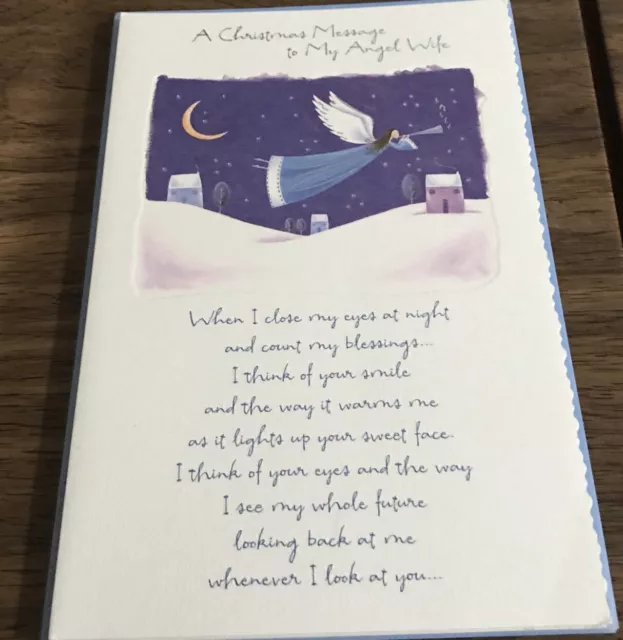 A Christmas Message
to My Angel Wife
When I close my eyes at night
and count my blessings...
I think of your smile
and the way it warms me
as it lights up your sweet face.
I think of your eyes and the way
I see my whole future
looking back at me
whenever I look at you...